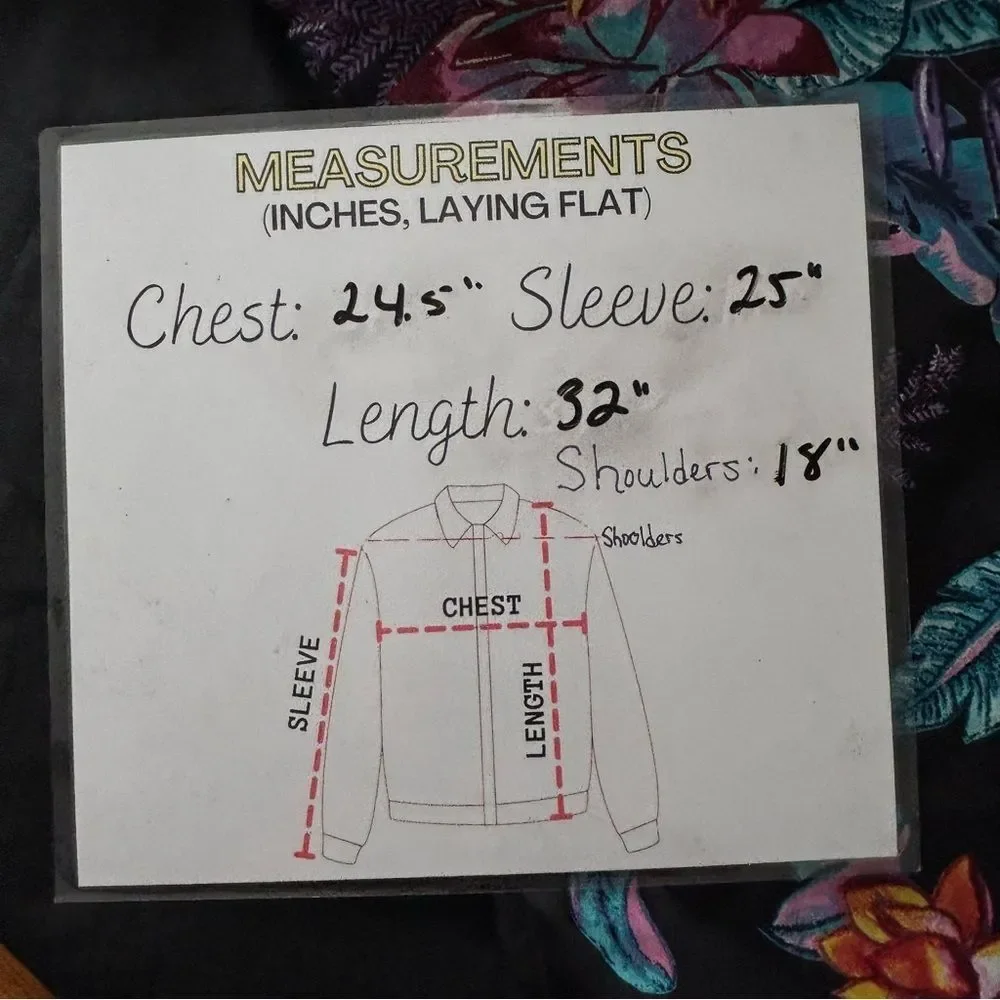 MEASUREMENTS
(INCHES, LAYING FLAT)
Chest: 24.5" Sleeve: 25"
Length: 32"
Shoulders: 18"
Shoolders
CHEST
SLEEVE
LENGTH